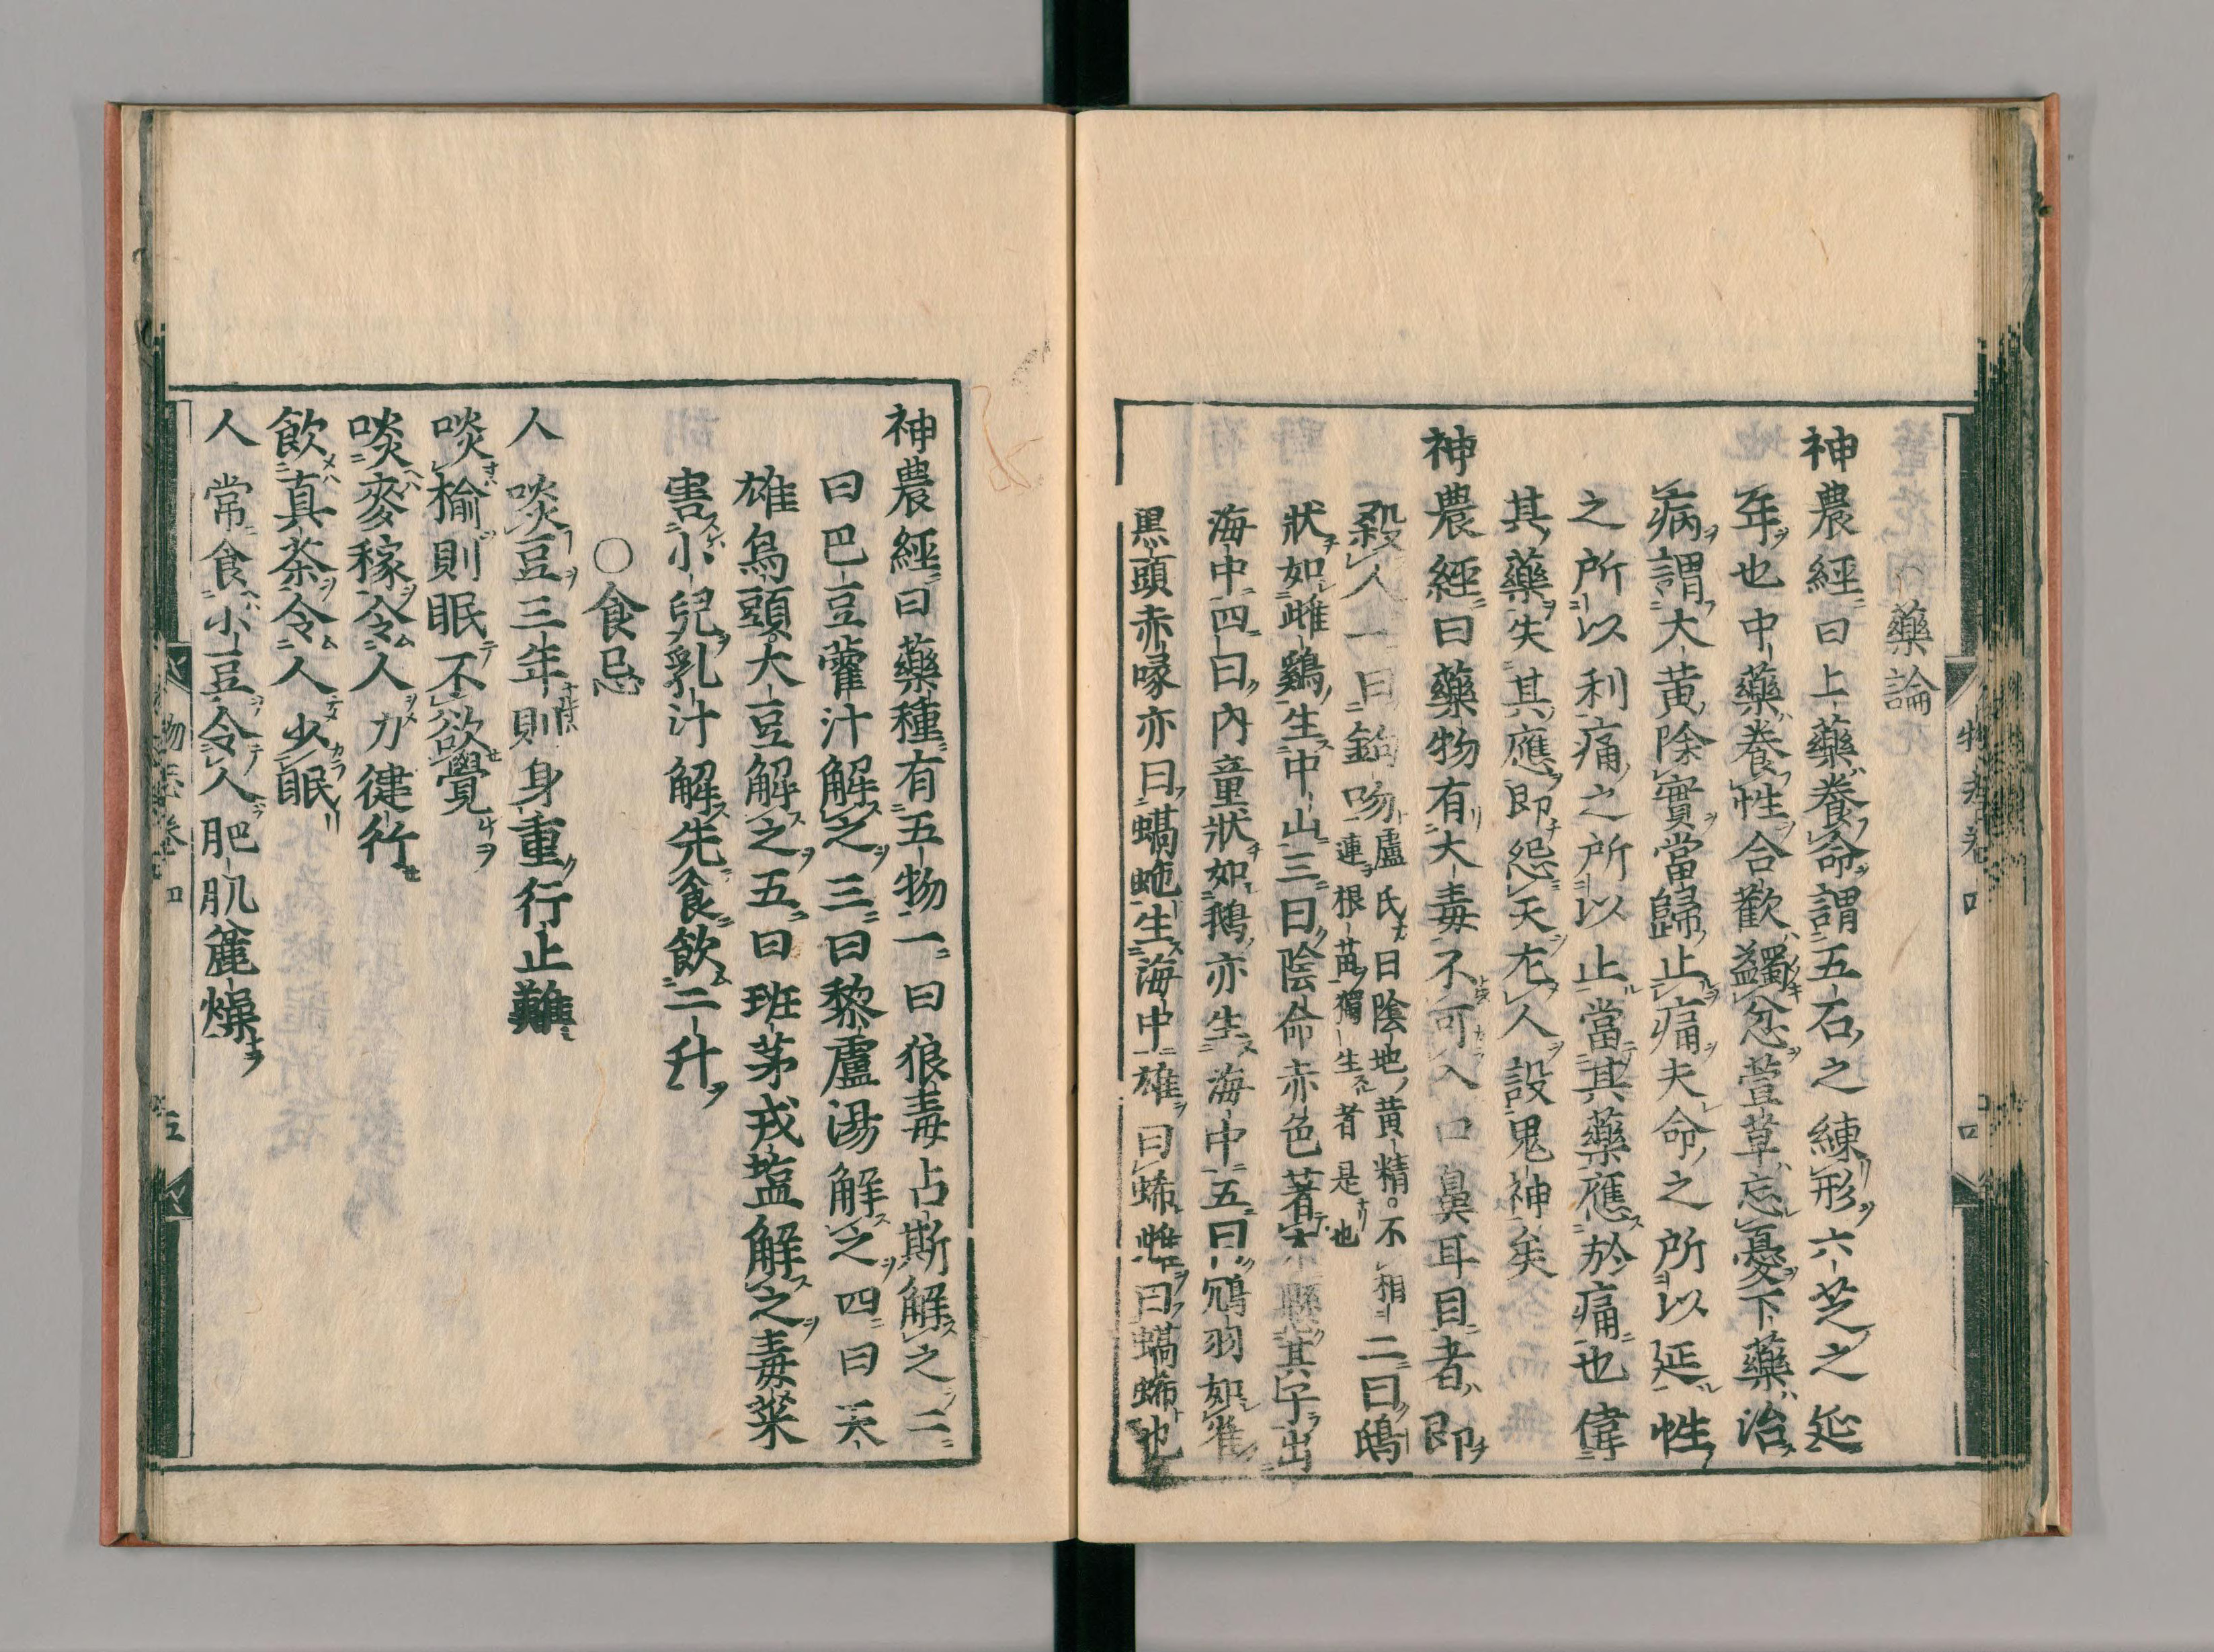 藥論
神農經曰上藥養命謂五石之練形六芝之延
年也中藥養性合歡蠲忿萱草忘憂下藥治
病謂大黃除實當歸止痛夫命之所以延性
之所以利痛之所以止當其藥應於痛也偉
其藥失其應即怨天尤人設鬼神矣
神農經曰藥物有大毒不可入口鼻耳目者即
殺人一曰鉤吻
盧氏曰陰地黃精不相
連根苗獨生者是也
二曰鴟
狀如雌鷄生中山三曰陰命赤色著木懸其子出
海中四曰内童狀如鵝亦生海中五曰鴆羽如雀
黒頭赤喙亦曰蝎虵生海中雄曰蛷雌曰蝎蛷也
神農經曰藥種有五物一曰狼毒占斯解之二
曰巴豆藿汁解之三曰黎盧湯解之四曰天
雄烏頭大豆解之五曰班茅戎塩解之毒菜
害小兒乳汁解先食飲二升
○食忌
人啖豆三年則身重行止難
啖榆則眠不欲覺
啖麥稼令人力健行
飲真茶令人少眠
人常食小豆令人肥肌麄燥
物志卷四
五